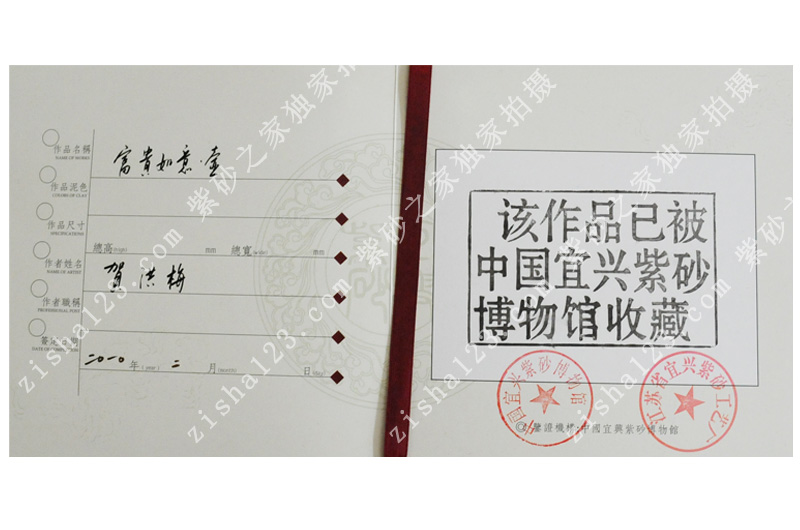 作品名稱 富貴如意·壶
NAME OF WORKS
作品泥色
COLORS OF CLAY
作品尺寸 總高(high) mm 總寬(wide) mm
SPECIFICATIONS
作者姓名 賀洪梅
NAME OF ARTIST
作者職稱
PROFESSIONAL POST
簽定日期 二〇一〇年(year) 二 月(month) 日(day)
DATE OF COMPLETION
该作品已被
中国宜兴紫砂
博物馆收藏
中国宜兴紫砂博物馆
江苏省宜兴紫砂工艺厂
鑒證機構:中國宜興紫砂博物館
zisha123.com 紫砂之家独家拍摄
zisha123.com 紫砂之家独家拍摄
zisha123.com 紫砂之家独家拍摄